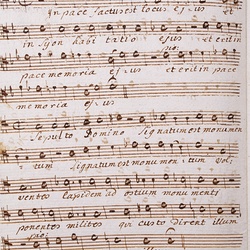 In pace factus est locus ejus et
in Syon habitatio ejus et erit in
pace memoria ejus et erit in pace
memoria ejus
Sepulto Domino signatum est monumen
tum signatum est monumentum vol:
ventes lapidem ad ostium monumenti
ponentes milites qui custodirent illum